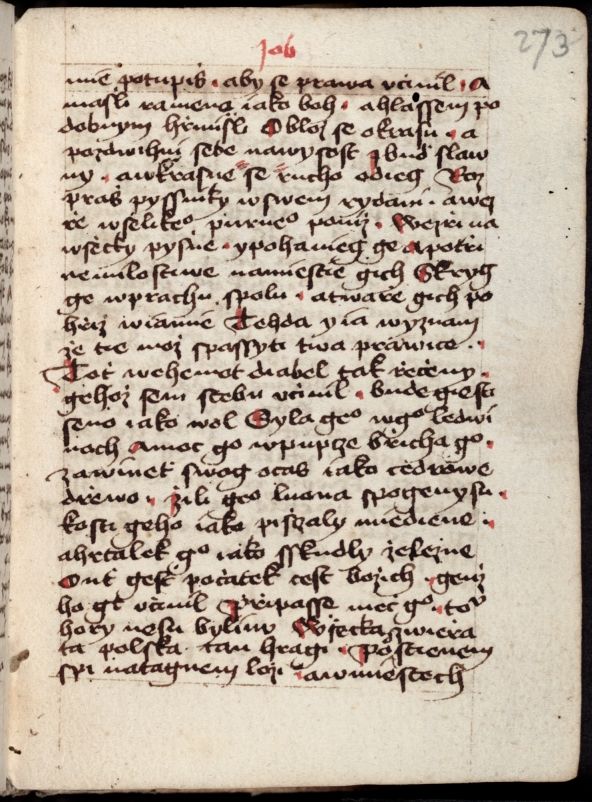 Job
273
mie potupiš · aby se prawa včinil · A
mašli rameno iako boh · a hlassem po
dobnym hřmiš li Obloz se okrasu · a
pozdwihni sebe nawysost A bud slaw
ny · a wkrasne se rucho odieg Roz
praš pyssniky w swem rydani · a wez
ře wselikeº purneº poniz · Wezři na
wsecky pysne · y pohanieg ge A potři
nemilostiwe na miestie gich Skryg
ge w prachu spolu · a tware gich po
hřiz w iamie Tehda y ia wyznam
že tie moz spassyti twa prawice ·
Tot wehemot diabel tak řečeny ·
gehoz sem s tebu včinil · bude giesti
seno iako wol Syla geº w gº ledwi
nach A moc gº w pupcze břicha gº ·
zawinet swog ocas iako cedrowe
drewo · žili geº luona spogeny su ·
kosti geho iako pišzaly miediene ·
a hrtalek gº iako sskudly železne
Ont gest počatek cest božich · genz
ho gt včinil připasse mec gº · toᵇ
hory nesu byliny Wšecka zwieřa
ta polska tau hragi · Pod stienem
spi na tagnem lozi · a w miestech